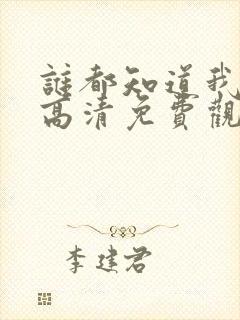 誰都知道我
高清免費觀
李建君